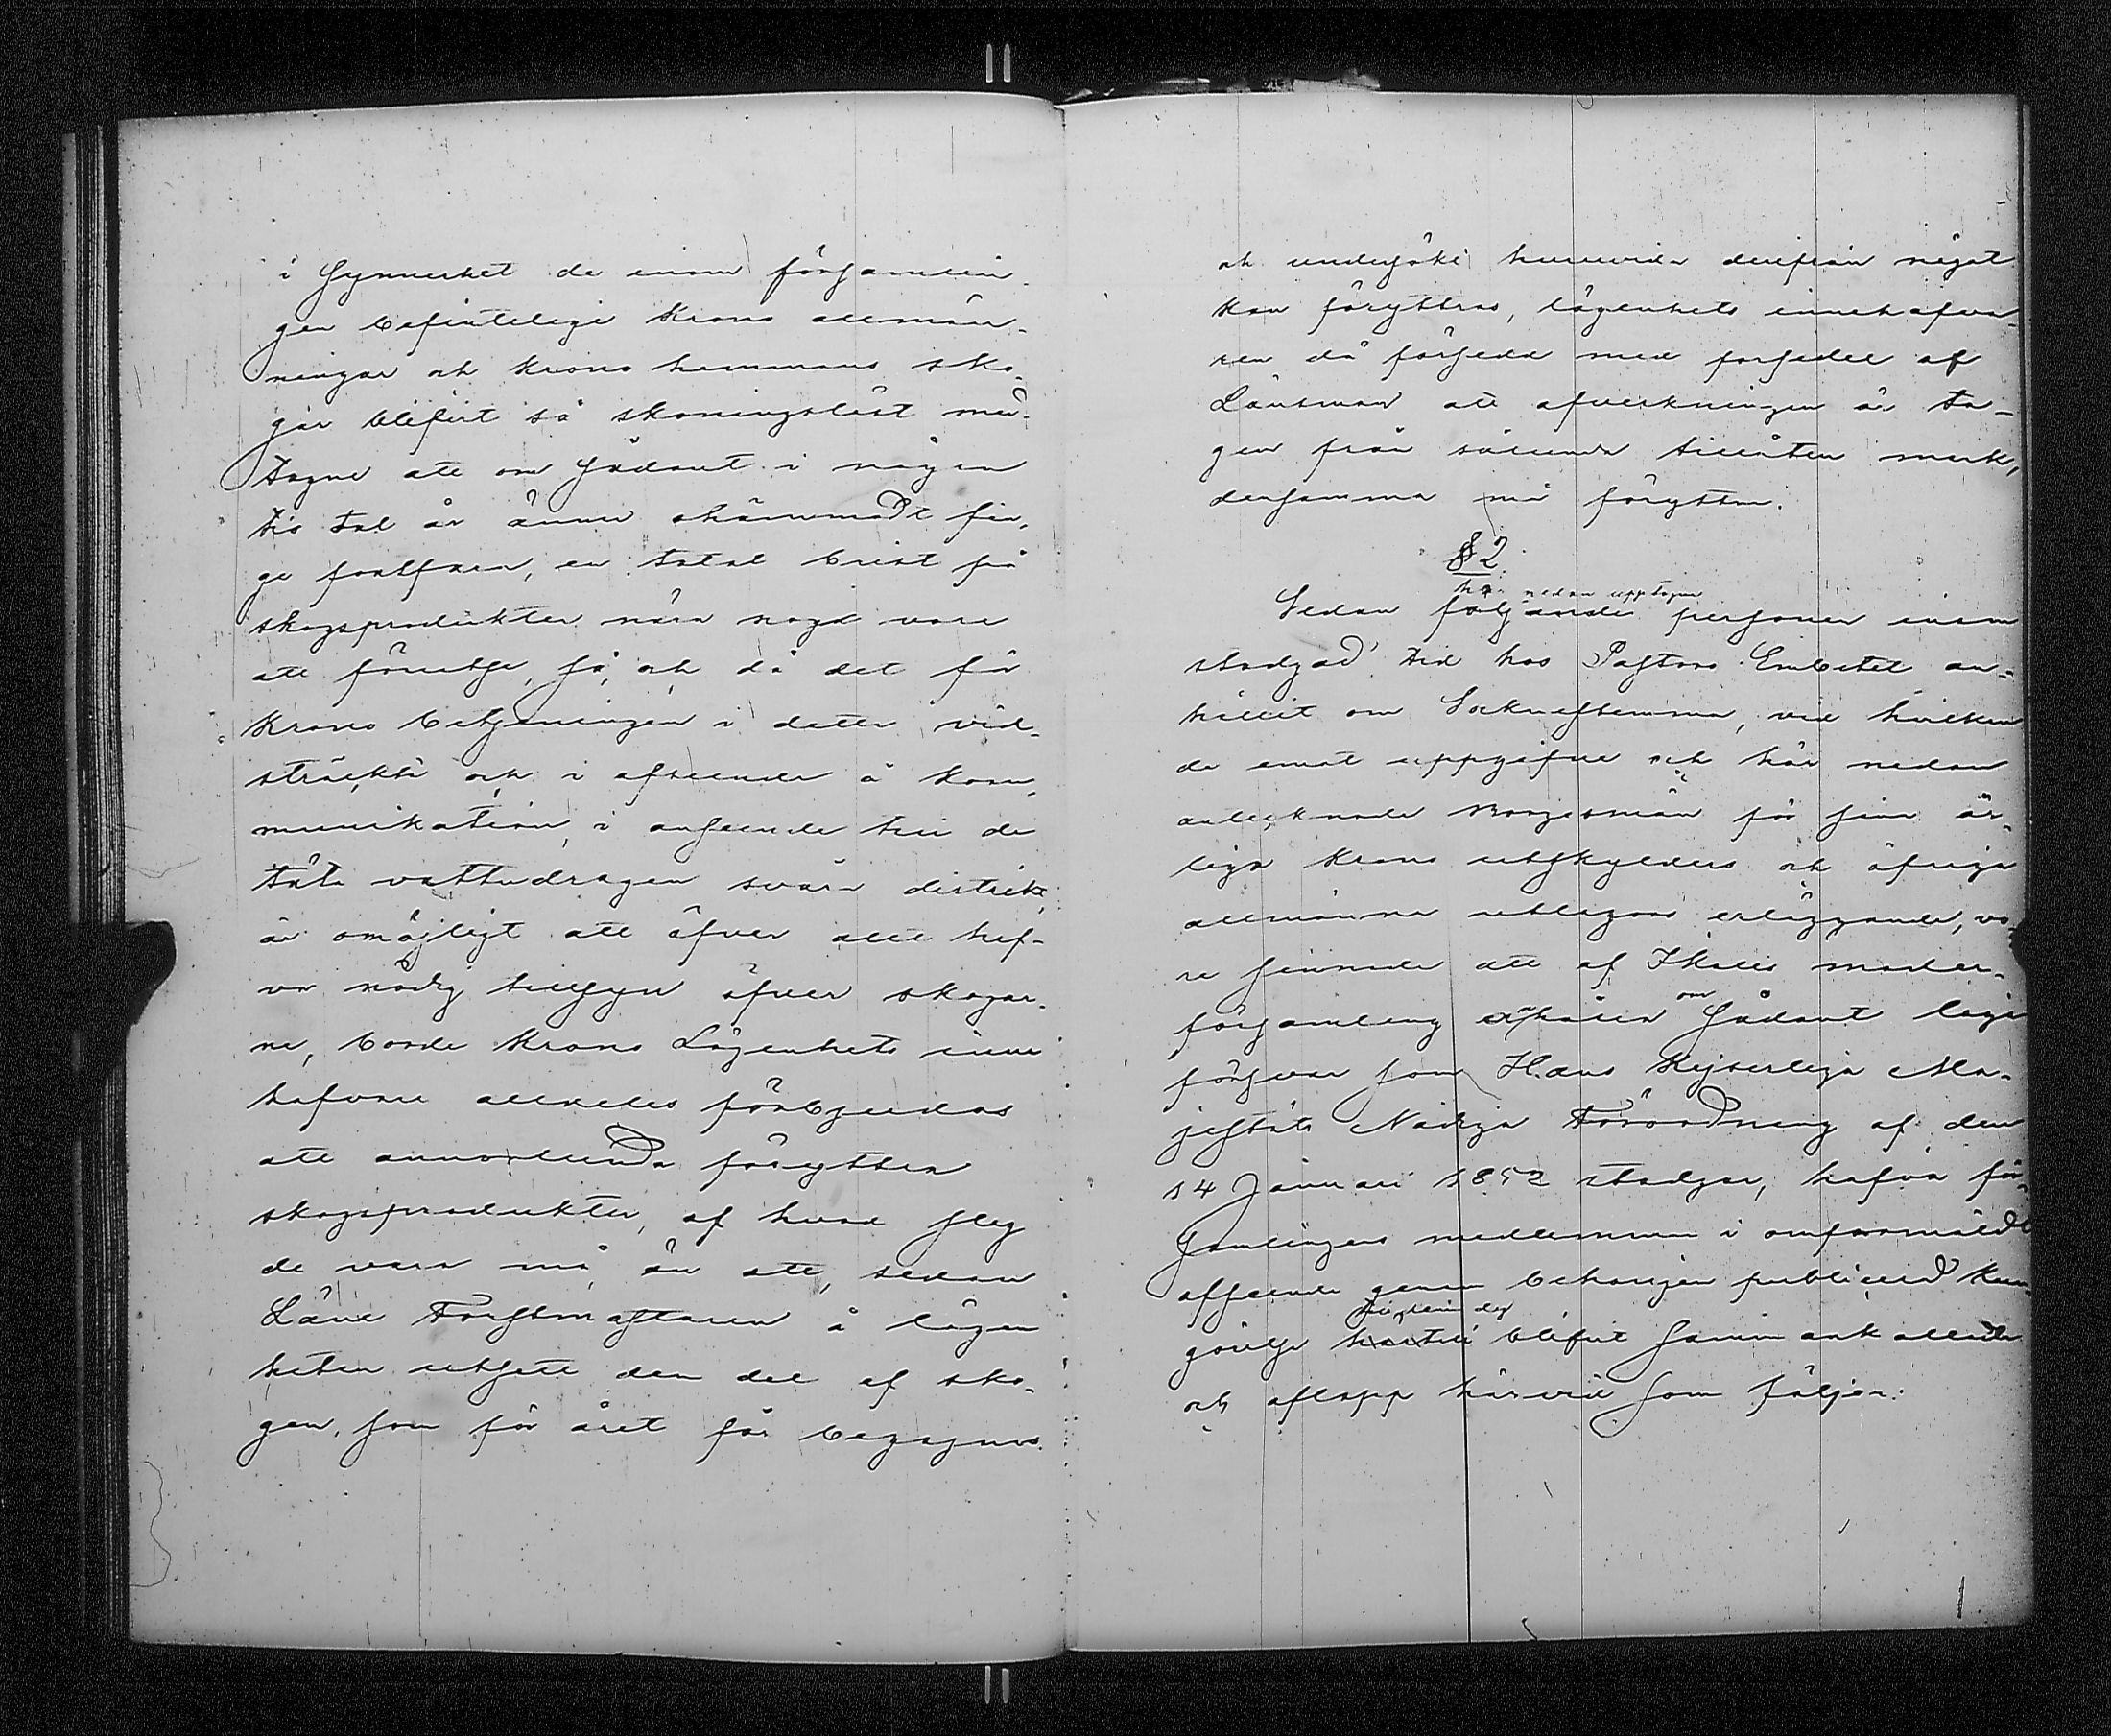 i synnerhet de inom församlin-
gen befintelige Krono allmän-
ningar och krono hemmans sko-
gar blifvit så skoningslöst med-
tagne att om sådant i någon
tis tal år ännu ohämmadt fin-
ge fortfara, en total brist på
skogsprodukter nära nogd vore
att förutse, så, och då det för
Krono betjeningen i detta vid-
sträckta och i afseende å kom-
munikation, i anseende till de
täta vattudragen svåra distrikt,
är omöjligt att öfver allt haf-
va nödig tillsyn öfver skogar-
ne, borde Krono Lägenhets inne
hafvare alldeles förbjudas
att annorlunda föryttra
skogsprodukter, af hvad slag
de vara må, än att, sedan
Läns Forstmästaren å lägen
heten utsett den del af sko-
gen, som för året får begagnas
och undersökt huruvida derifrån något
kan föryttras, lägenhets innehafva-
ren då försedd med forsedel af
Länsman att afverkningen är ta-
gen från sålunda tillåten mark,
densamma må föryttra.
§ 2.
här nedan upptagne
Sedan följande personer inom
stadgad tid hos Pastors Embetet an-
hållit om Socknestemma, vid hvilken
de emot uppgifne och här nedan
antecknade Borgesmän för sina år-
liga Krono utskylders och öfriga
allmänna utlagors erläggande, vo-
re sinnade att af Ikalis moder-
församling anhålla om sådant laga
försvar som Hans Kejserliga Ma-
jestäts Nådiga Förordning af den
14 Januari 1852 stadgar, hafva för-
samlingens medlemmar i omförmäldt
afseende genom behörigen publicerad kun-
görelse härtill till denna dag blifvit sammankallade
och aflopp härvid som följer: